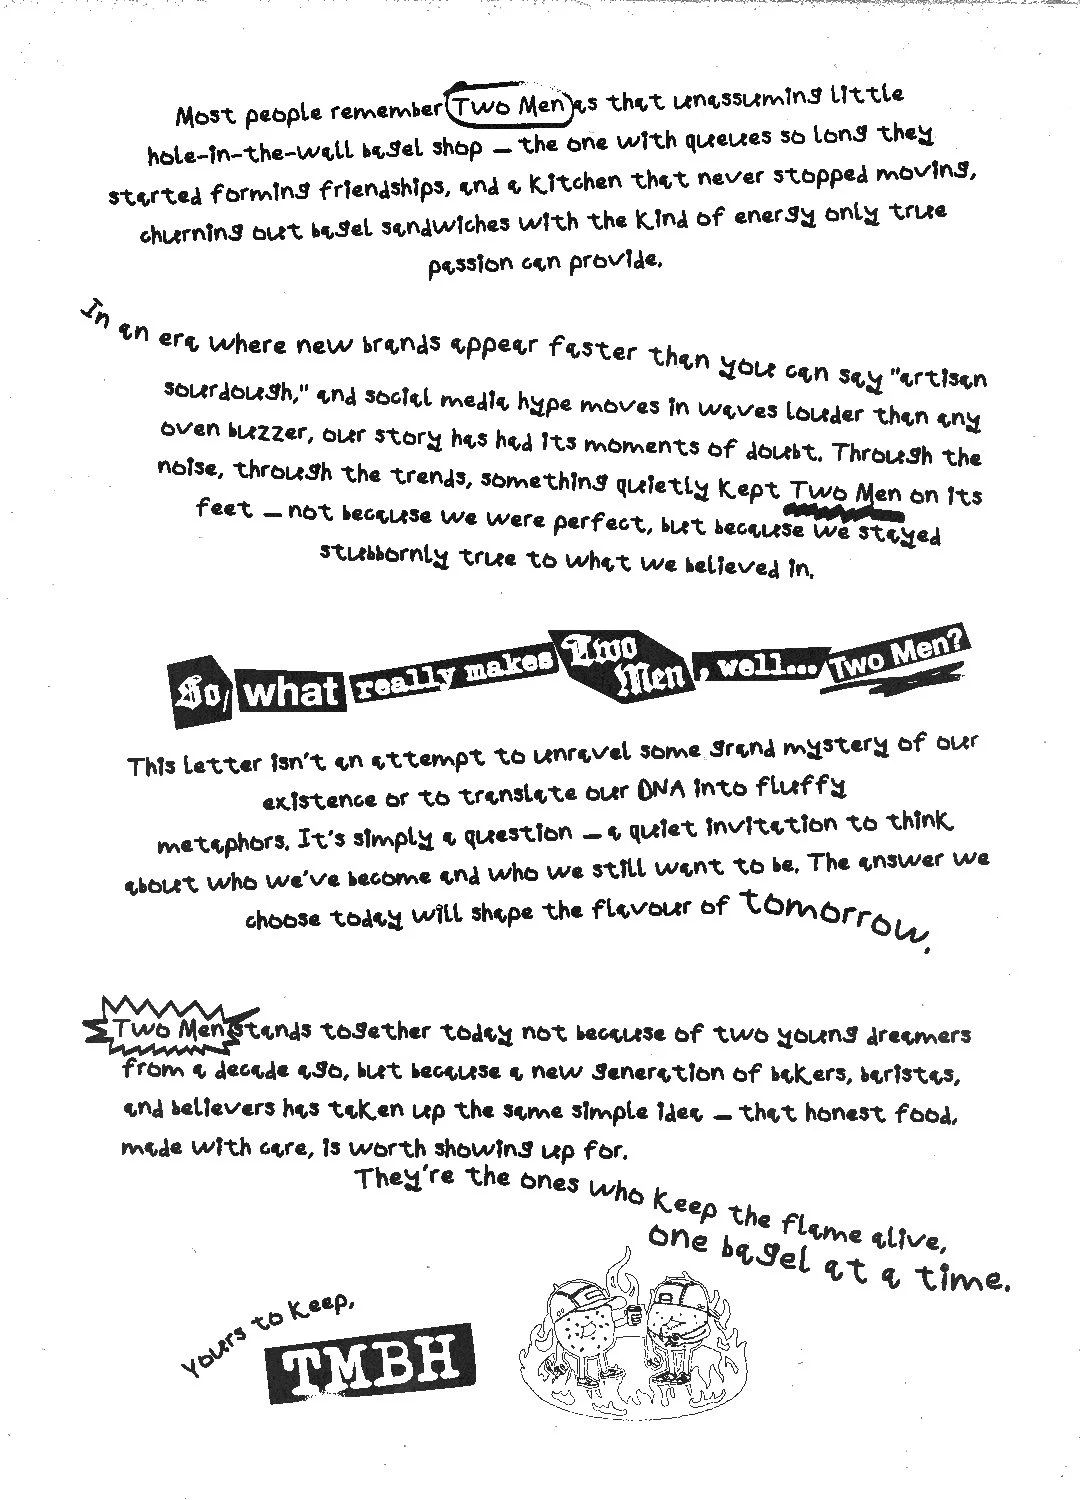 Most people remember Two Men as that unassuming little
hole-in-the-wall bagel shop — the one with queues so long they
started forming friendships, and a kitchen that never stopped moving,
churning out bagel sandwiches with the kind of energy only true
passion can provide.
In an era where new brands appear faster than you can say "artisan
sourdough," and social media hype moves in waves louder than any
oven buzzer, our story has had its moments of doubt. Through the
noise, through the trends, something quietly kept Two Men on its
feet — not because we were perfect, but because we stayed
stubbornly true to what we believed in.
So, what really makes Two Men, well... Two Men?
This letter isn't an attempt to unravel some grand mystery of our
existence or to translate our DNA into fluffy
metaphors. It's simply a question — a quiet invitation to think
about who we've become and who we still want to be. The answer we
choose today will shape the flavour of tomorrow.
Two Men stands together today not because of two young dreamers
from a decade ago, but because a new generation of bakers, baristas,
and believers has taken up the same simple idea — that honest food,
made with care, is worth showing up for.
They're the ones who keep the flame alive,
one bagel at a time.
Yours to keep,
TMBH